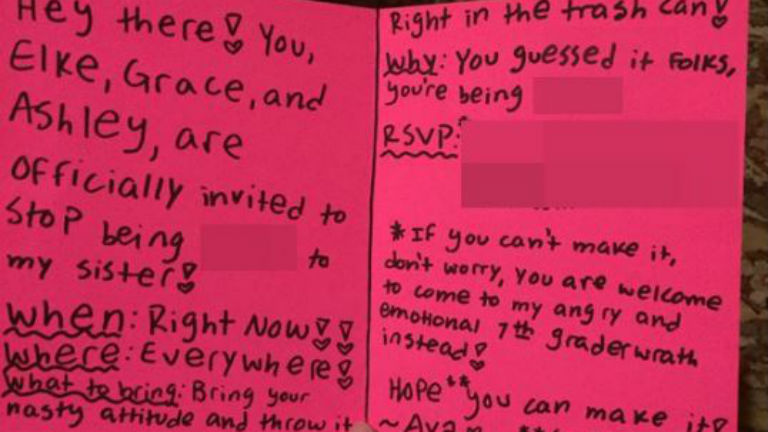 Hey there! You,
Elke, Grace, and
Ashley, are
officially invited to
stop being
to
my sister!
When: Right Now!!
Where: Everywhere!
What to bring: Bring your
nasty attitude and throw it
Right in the trash can!
Why: You guessed it folks,
you're being
RSVP:
*If you can't make it,
don't worry, you are welcome
to come to my angry and
emotional 7th grader wrath
instead!
Hope** you can make it!